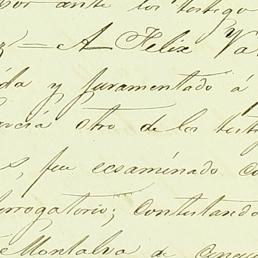 por ante los testigo
= A Felix Va
da y juramentado á
Garcia otro de los test
s, fue ecsaminado co
terrogatorio; contestando
e Montalva de cinqu